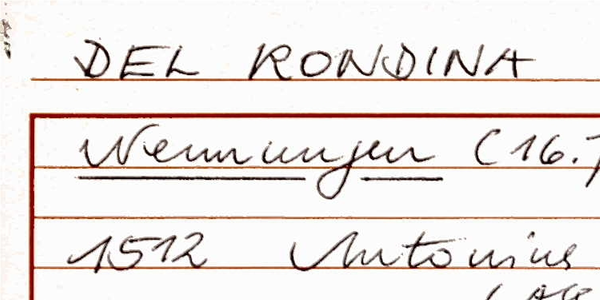 DEL RONDINA
Nennungen (16.
1512 Antonius